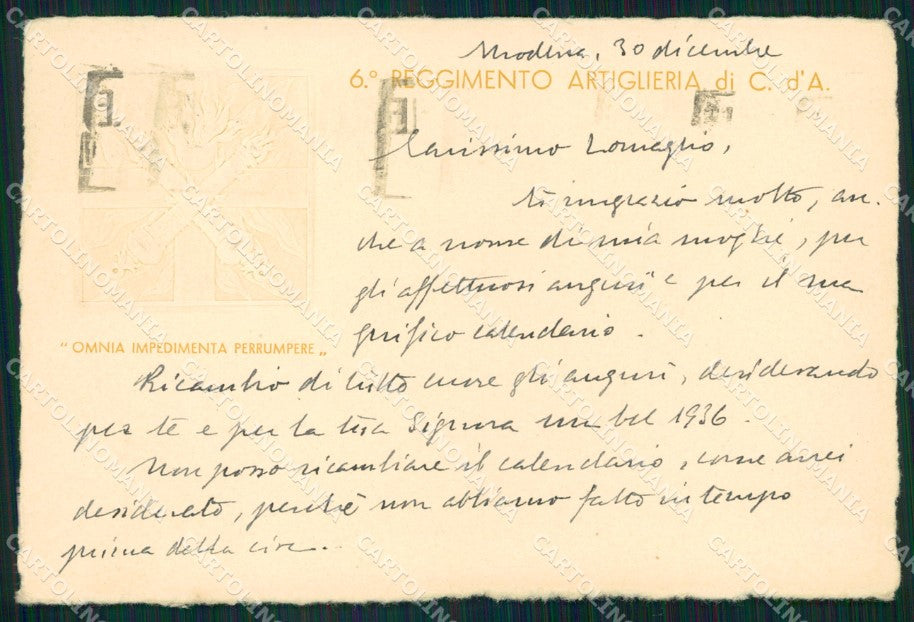 Modena, 30 dicembre
6.° REGGIMENTO ARTIGLIERIA di C. d'A.
Carissimo Lomaglio,
ti ringrazio molto, an-
che a nome di mia moglie, per
gli affettuosi auguri e per il ma
gnifico calendario.
"OMNIA IMPEDIMENTA PERRUMPERE„
Ricambio di tutto cuore gli auguri, desiderando
per te e per la tua Signora un bel 1936.
Non posso ricambiare il calendario, come avrei
desiderato, perchè non abbiamo fatto in tempo
prima della circ..
CARTOLINOMANIA